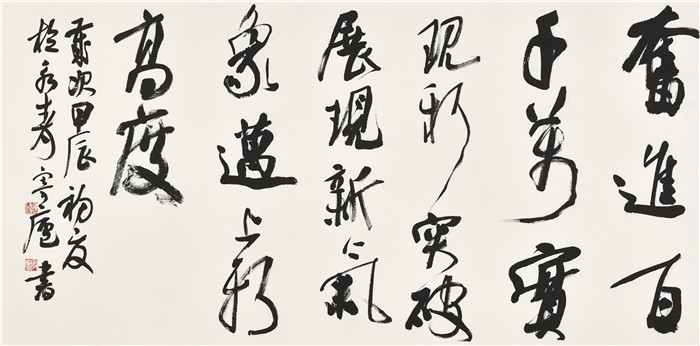 奮進百
千萬實
現新突破
展現新氣
象邁上新
高度
歲次甲辰初夏
於廬書